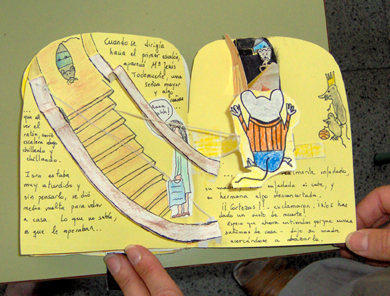 Cuando se dirigía
hacia el primer escalón,
apareció Mª Jesús
Todomiente, una
señora mayor y
y algo
... que al
ver el
ratón, corrió
escalera abajo
chillando y
chillando.
Isra estaba
muy aturdido y
sin pensarlo, se dió
media vuelta para volver
a casa. Lo que no sabía,
es que le esperaban...
su hermana algo desconcertada.
¡¡Cortezas!! - exclamaron. ¡Nos has
dado un susto de muerte!
Espera que ahora entiendas porque nunca
salimos de casa - dijo su madre
acercándose a abrazarlo.